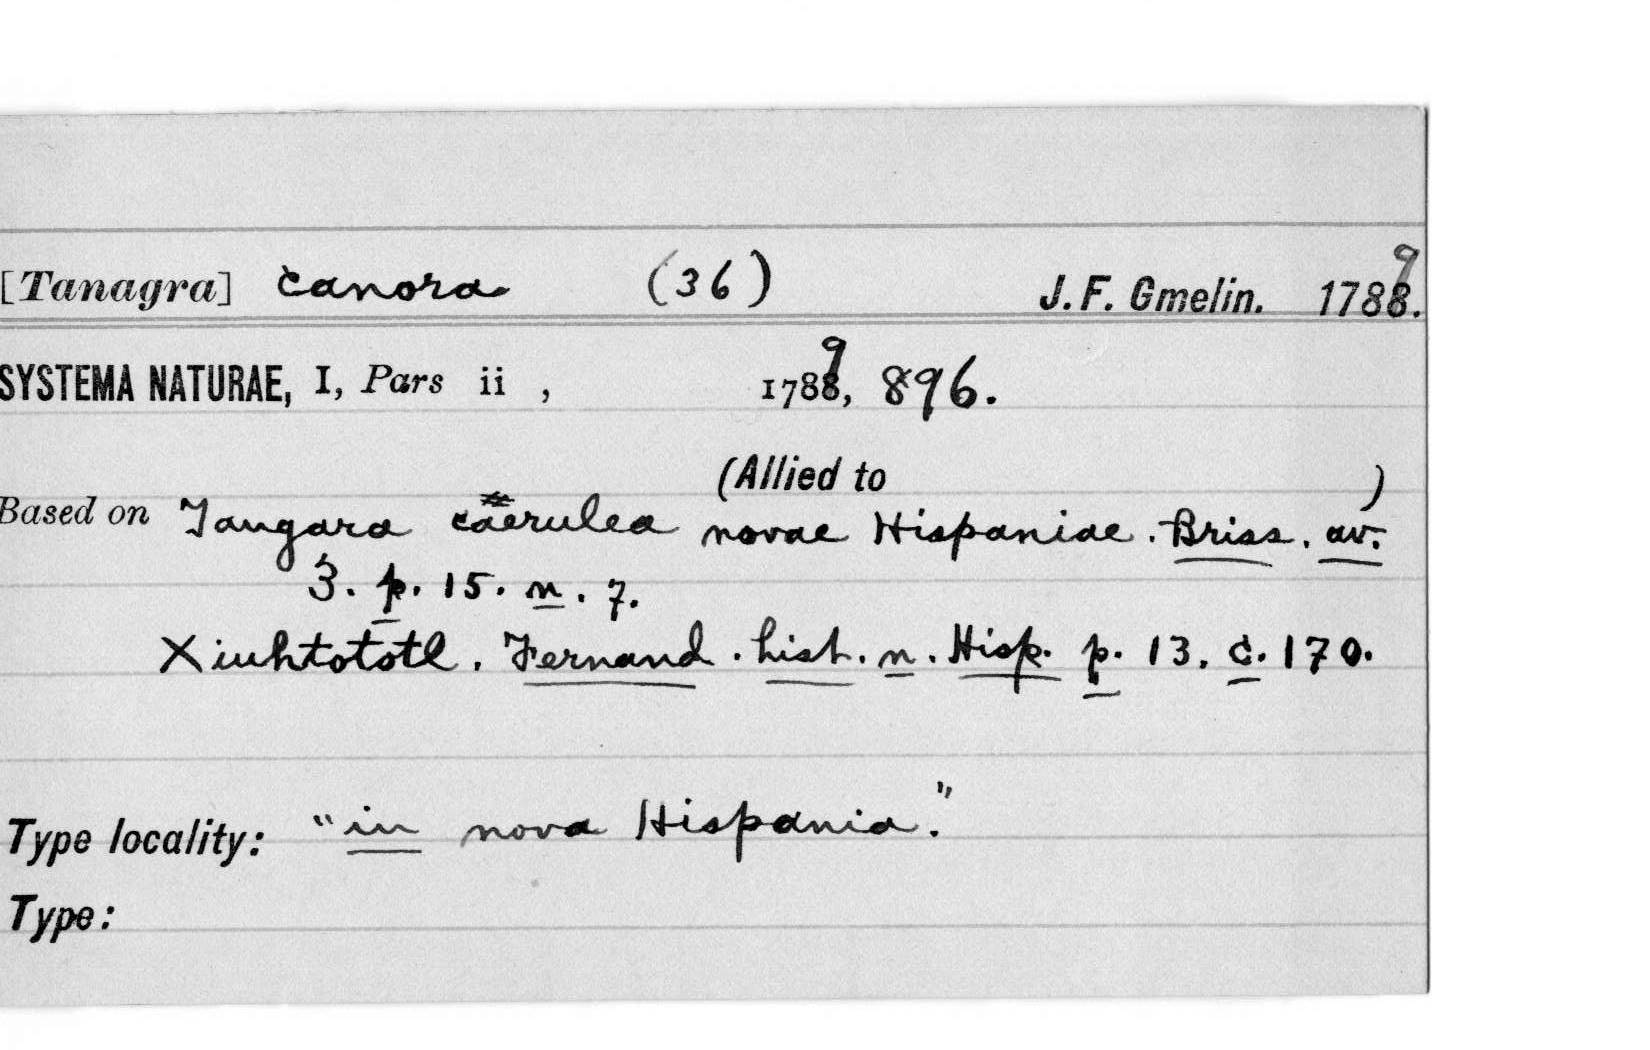 [Tanagra] canora (36) J. F. Gmelin. 1789.
SYSTEMA NATURAE, I, Pars ii , 1789, 896.
(Allied to )
Based on Tangara caerulea novae Hispaniae. Briss. av.
3. p. 15. n. 7.
Xiuhtototl. Fernand. hist. n. Hisp. p. 13. c. 170.
Type locality: "in nova Hispania."
Type: